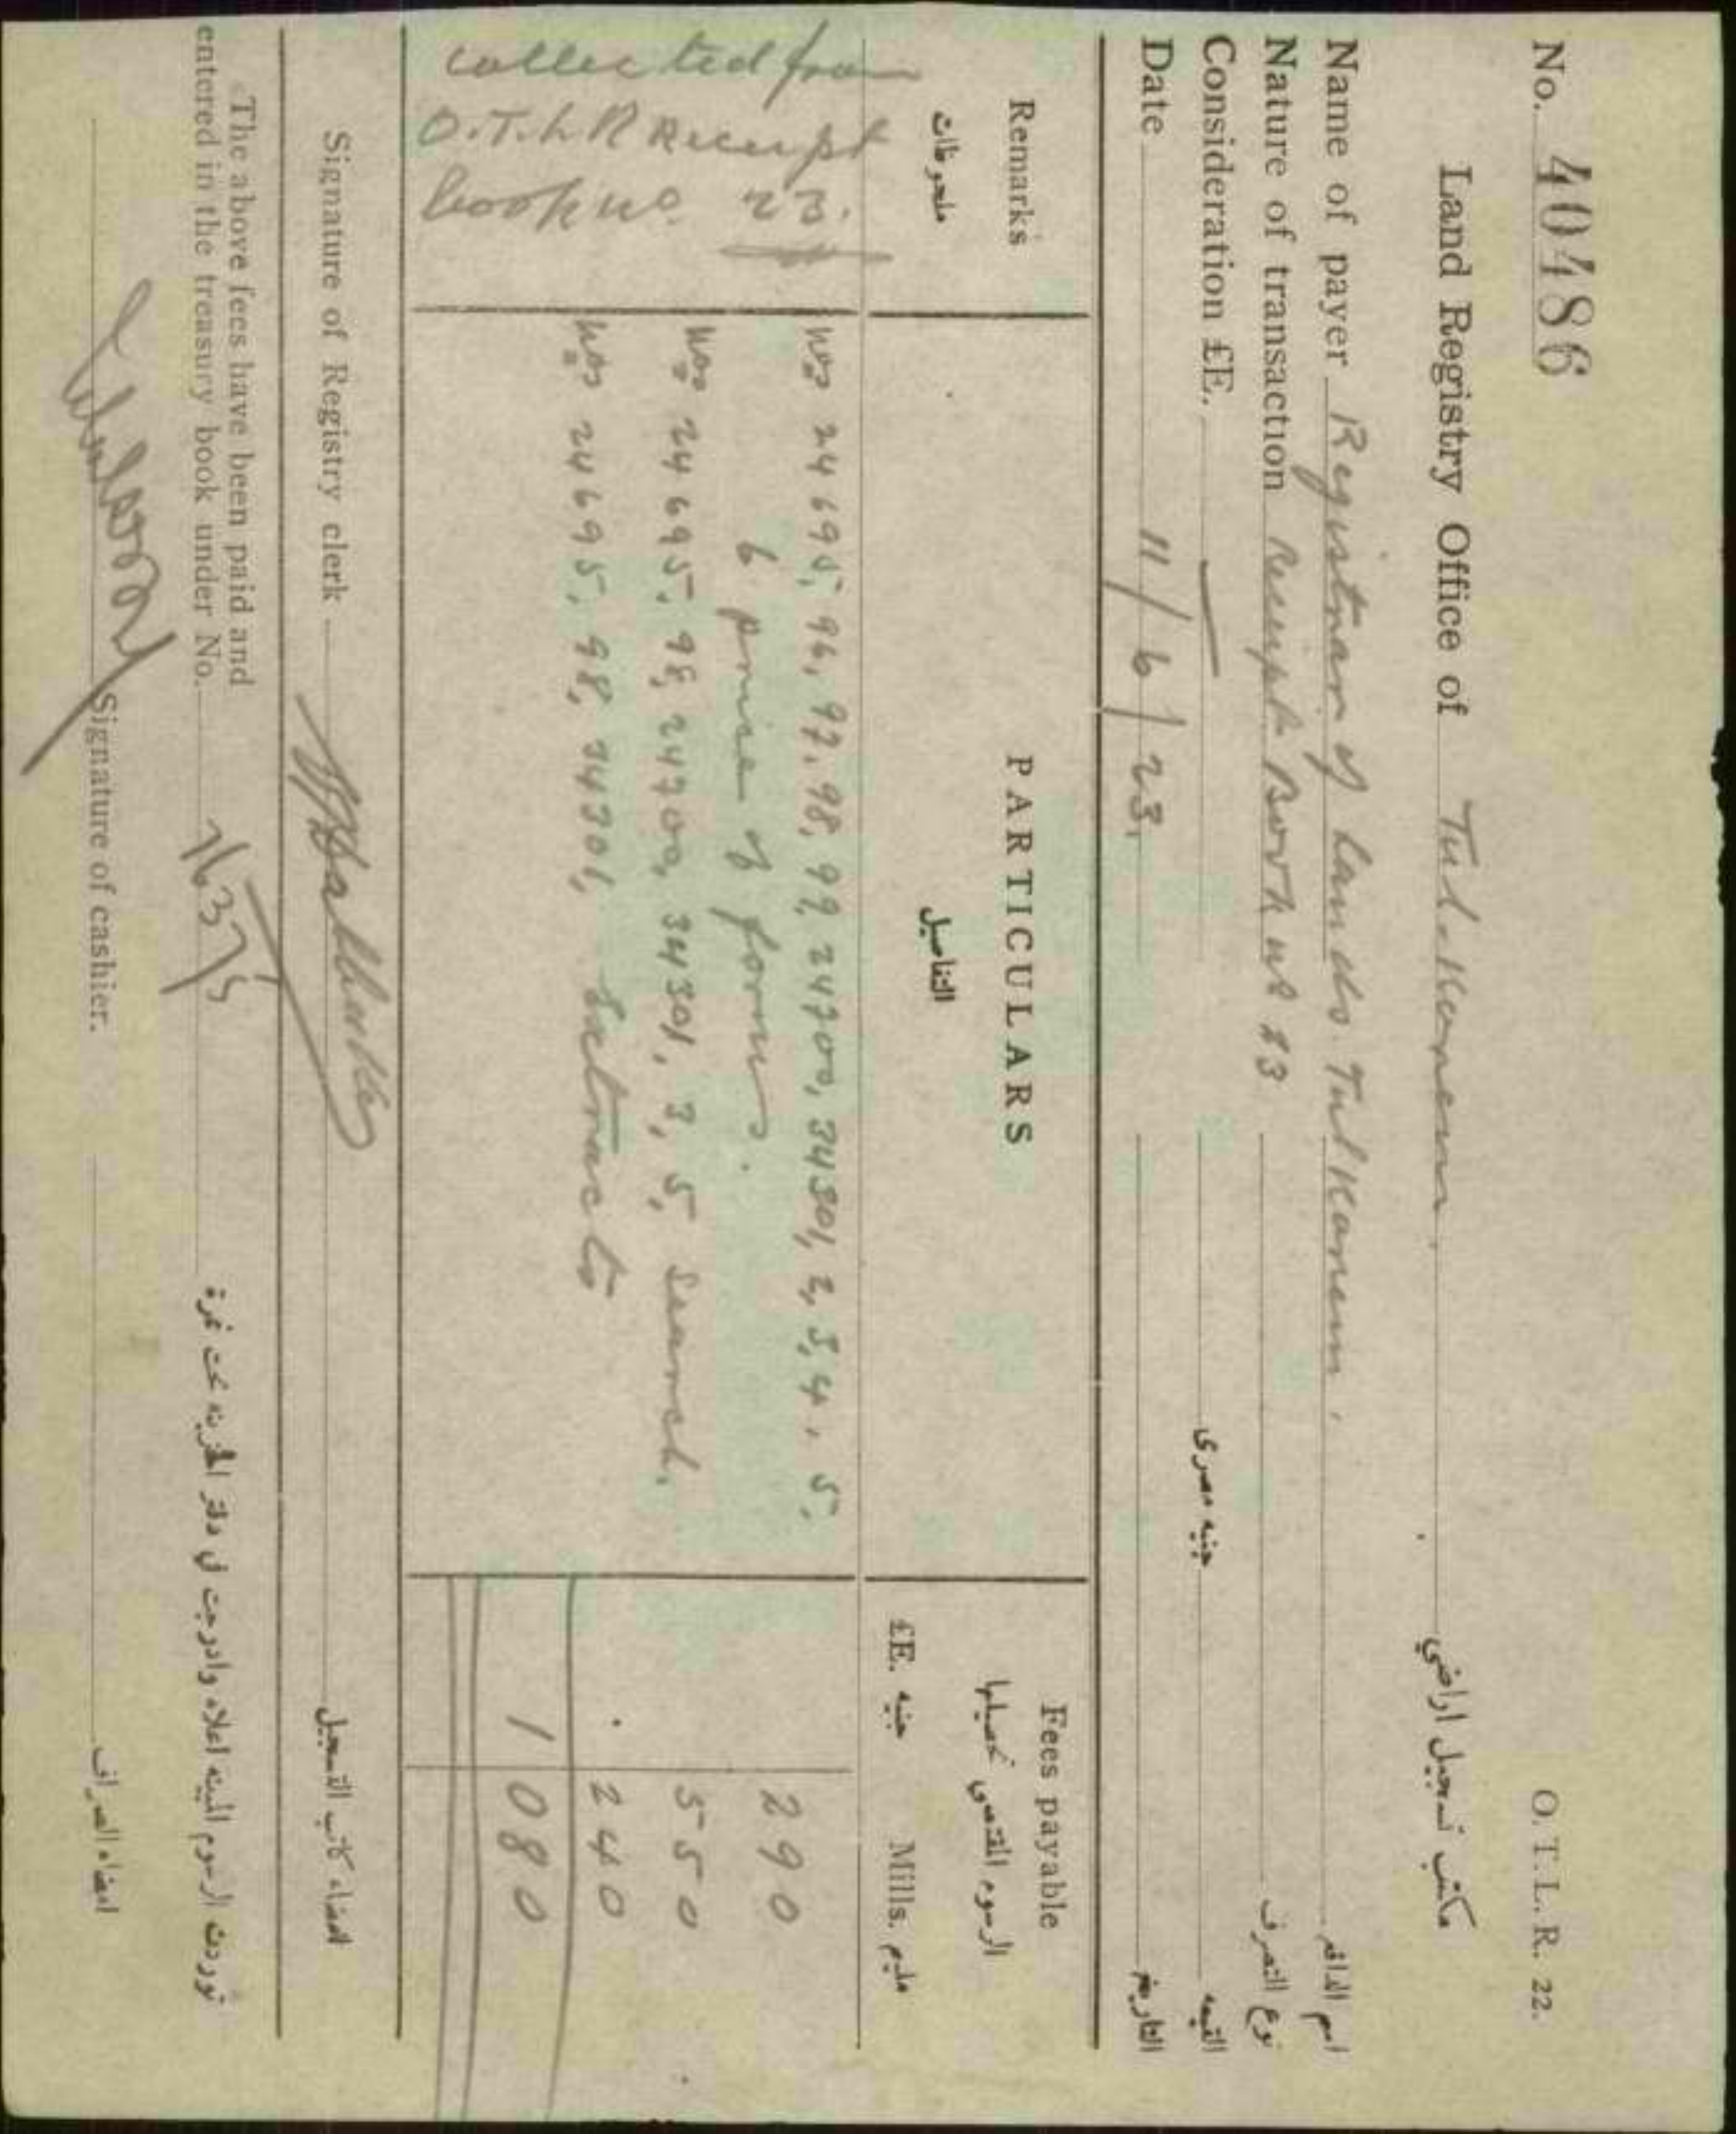 No. 40486
O. T. L. R. 22.
Land Registry Office of Tul-Keram. مكتب تسجيل اراضي
Name of payer Registrar of Lands. Tul Karem. اسم الدافع
Nature of transaction Receipt Book no 23 نوع التصرف
Consideration £E. جنيه مصرى القيمه
Date 11/6/23. التاريخ
Remarks PARTICULARS Fees payable
ملحوظات التفاصيل الرسوم المقتضى تحصيلها
£E. جنيه Mills. مليم
collected from
O.T.L.R Receipt
book no. 23.
Nos 24695, 96, 97, 98, 99, 24700, 34301, 2, 3, 4, 5, 290
6 price of forms.
Nos 24695, 98, 24700, 34301, 3, 5, Search. 550
Nos 24695, 98, 34301, Extracts 240
1 080
Signature of Registry clerk امضاء كاتب التسجيل
The above fees have been paid and
entered in the treasury book under No. توردت الرسوم المبينه اعلاه وادرجت في دفتر الخزينه تحت نمرة
Signature of cashier. امضاء الصراف